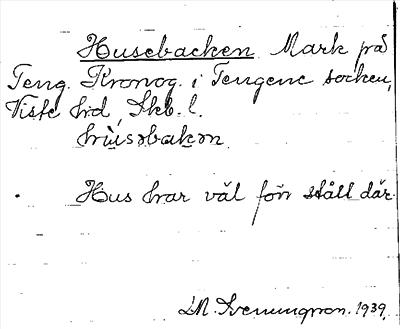 Husebacken Mark på
Teng. Kronog. i Tengene socken,
Viste hd, Skb. l.
hùsəbakən
Hus har väl förr stått där.
LM. Svenungsson. 1939.